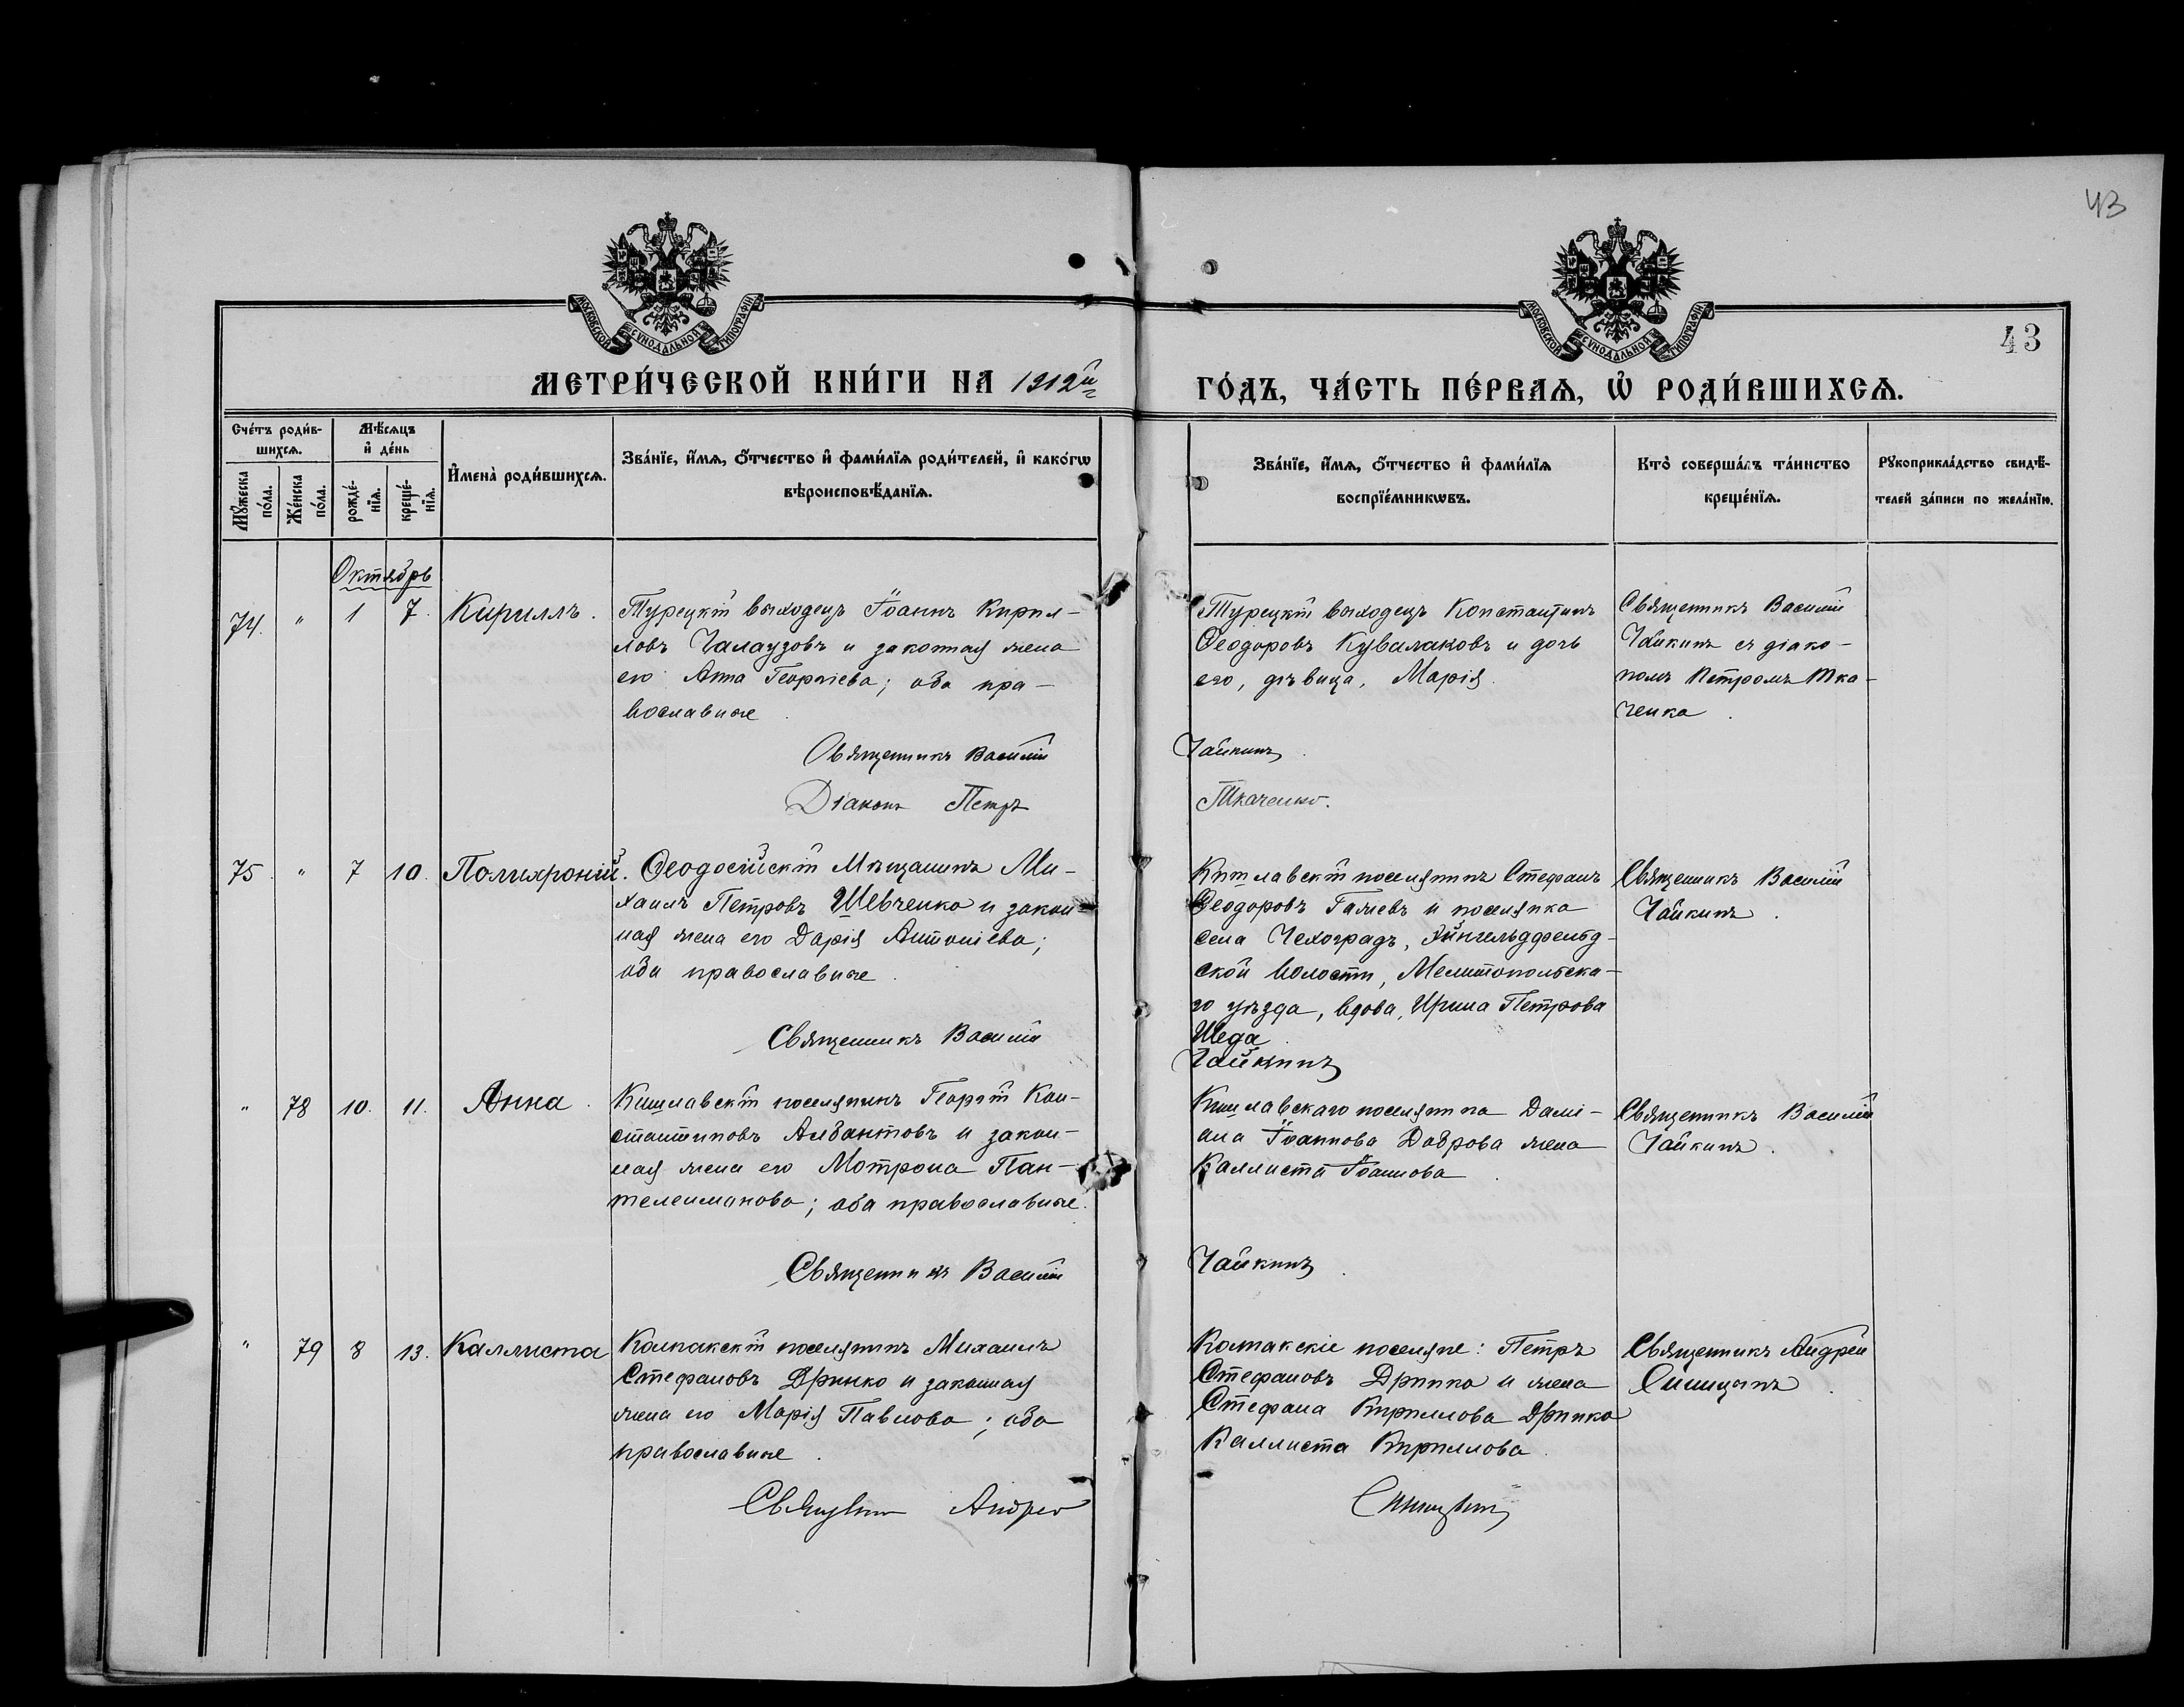 43
МОСКОВСКОЙ СѴНОДАЛЬНОЙ ТИПОГРАФІИ
МОСКОВСКОЙ СѴНОДАЛЬНОЙ ТИПОГРАФІИ
43
МЕТРИ́ЧЕСКОЙ КНИ́ГИ НА 1912й ГО́ДЪ, ЧА́СТЬ ПЕ́РВАѦ, Ѡ҆ РОДИ́ВШИХСѦ.
Сче́тъ роди́в-
шихсѧ.
Мꙋ́жеска по́ла.
Же́нска по́ла.
Мѣ́сѧцъ и҆ де́нь
рожде́-нїѧ.
креще́-нїѧ.
И҆мена̀ роди́вшихсѧ.
Зва́нїе, и҆́мѧ, ѻ҆́тчество и҆ фами́лїѧ роди́телей, и҆ како́гѡ
вѣроисповѣ́данїѧ.
Зва́нїе, и҆́мѧ, ѻ҆́тчество и҆ фами́лїѧ
воспрїе́мникѡвъ.
Кто̀ соверша́лъ та́инство
креще́нїѧ.
Рꙋкоприкла́дство свидѣ́-
телей за́писи по жела́нїю.
Октябрь
74. " 1 7. Кириллъ.
Турецкій выходецъ Іоаннъ Кирил-
ловъ Чалаузовъ и законная жена
его Анна Георгіева; оба пра-
вославные
Турецкій выходецъ Константинъ
Ѳеодоровъ Кувалаковъ и дочь
его, дѣвица, Марія.
Священникъ Василій
Чайкинъ съ діако-
номъ Петромъ Тка-
ченко.
Священникъ Василій Чайкинъ.
Діаконъ Петръ Ткаченко.
75. " 7 10. Полихроній.
Ѳеодосійскій Мѣщанинъ Ми-
хаилъ Петровъ Шевченко и закон-
ная жена его Дарія Антоніева;
оба православные.
Кишлавскій поселянинъ Стефанъ
Ѳеодоровъ Галіевъ и поселянка
села Чехоградъ, Эйнгельдфельд-
ской волости, Мелитопольска-
го уѣзда, вдова, Ирина Петрова
Шеда
Священникъ Василій
Чайкинъ.
Священникъ Василій Чайкинъ
" 78 10. 11. Анна.
Кишлавскій поселянинъ Георгій Кон-
стантиновъ Алвантовъ и закон-
ная жена его Мотрона Пан-
телеимонова; оба православные.
Кишлавскаго поселянина Дамі-
ана Іоаннова Доброва жена
Каллиста Іоаннова.
Священникъ Василій
Чайкинъ.
Священникъ Василій Чайкинъ.
" 79 8 13. Каллиста
Колпакскій поселянинъ Михаилъ
Стефановъ Дринко и законная
жена его Марія Павлова; оба
православные.
Колпакскіе поселяне: Петръ
Стефановъ Дринко и жена
Стефана Кириллова Дринко
Каллиста Кириллова.
Священникъ Андрей
Синицынъ.
Священникъ Андрей Синицынъ